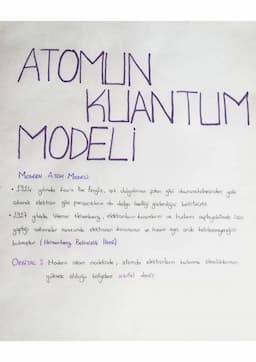 ATOMUN
KUANTUM
MODELİ
MODERN ATOM MODELİ
• 1924 yılında Louis De Broglie, ışık dalgalarının foton gibi davranabilmesinden yola
çıkarak elektron gibi parçacıkların da dalga özelliği gösterdiğini belirtmiştir.
• 1927 yılında Werner Heisenberg, elektronların konumlarını ve hızlarını saptayabilmek için
yaptığı çalışmalar sonucunda elektronun konumunu ve hızının aynı anda belirlenemeyeceğini
bulmuştur. (Heisenberg Belirsizlik İlkesi)
ORBİTAL: Modern atom modelinde, atomda elektronların bulunma olasılıklarının
yüksek olduğu bölgelere orbital denir.